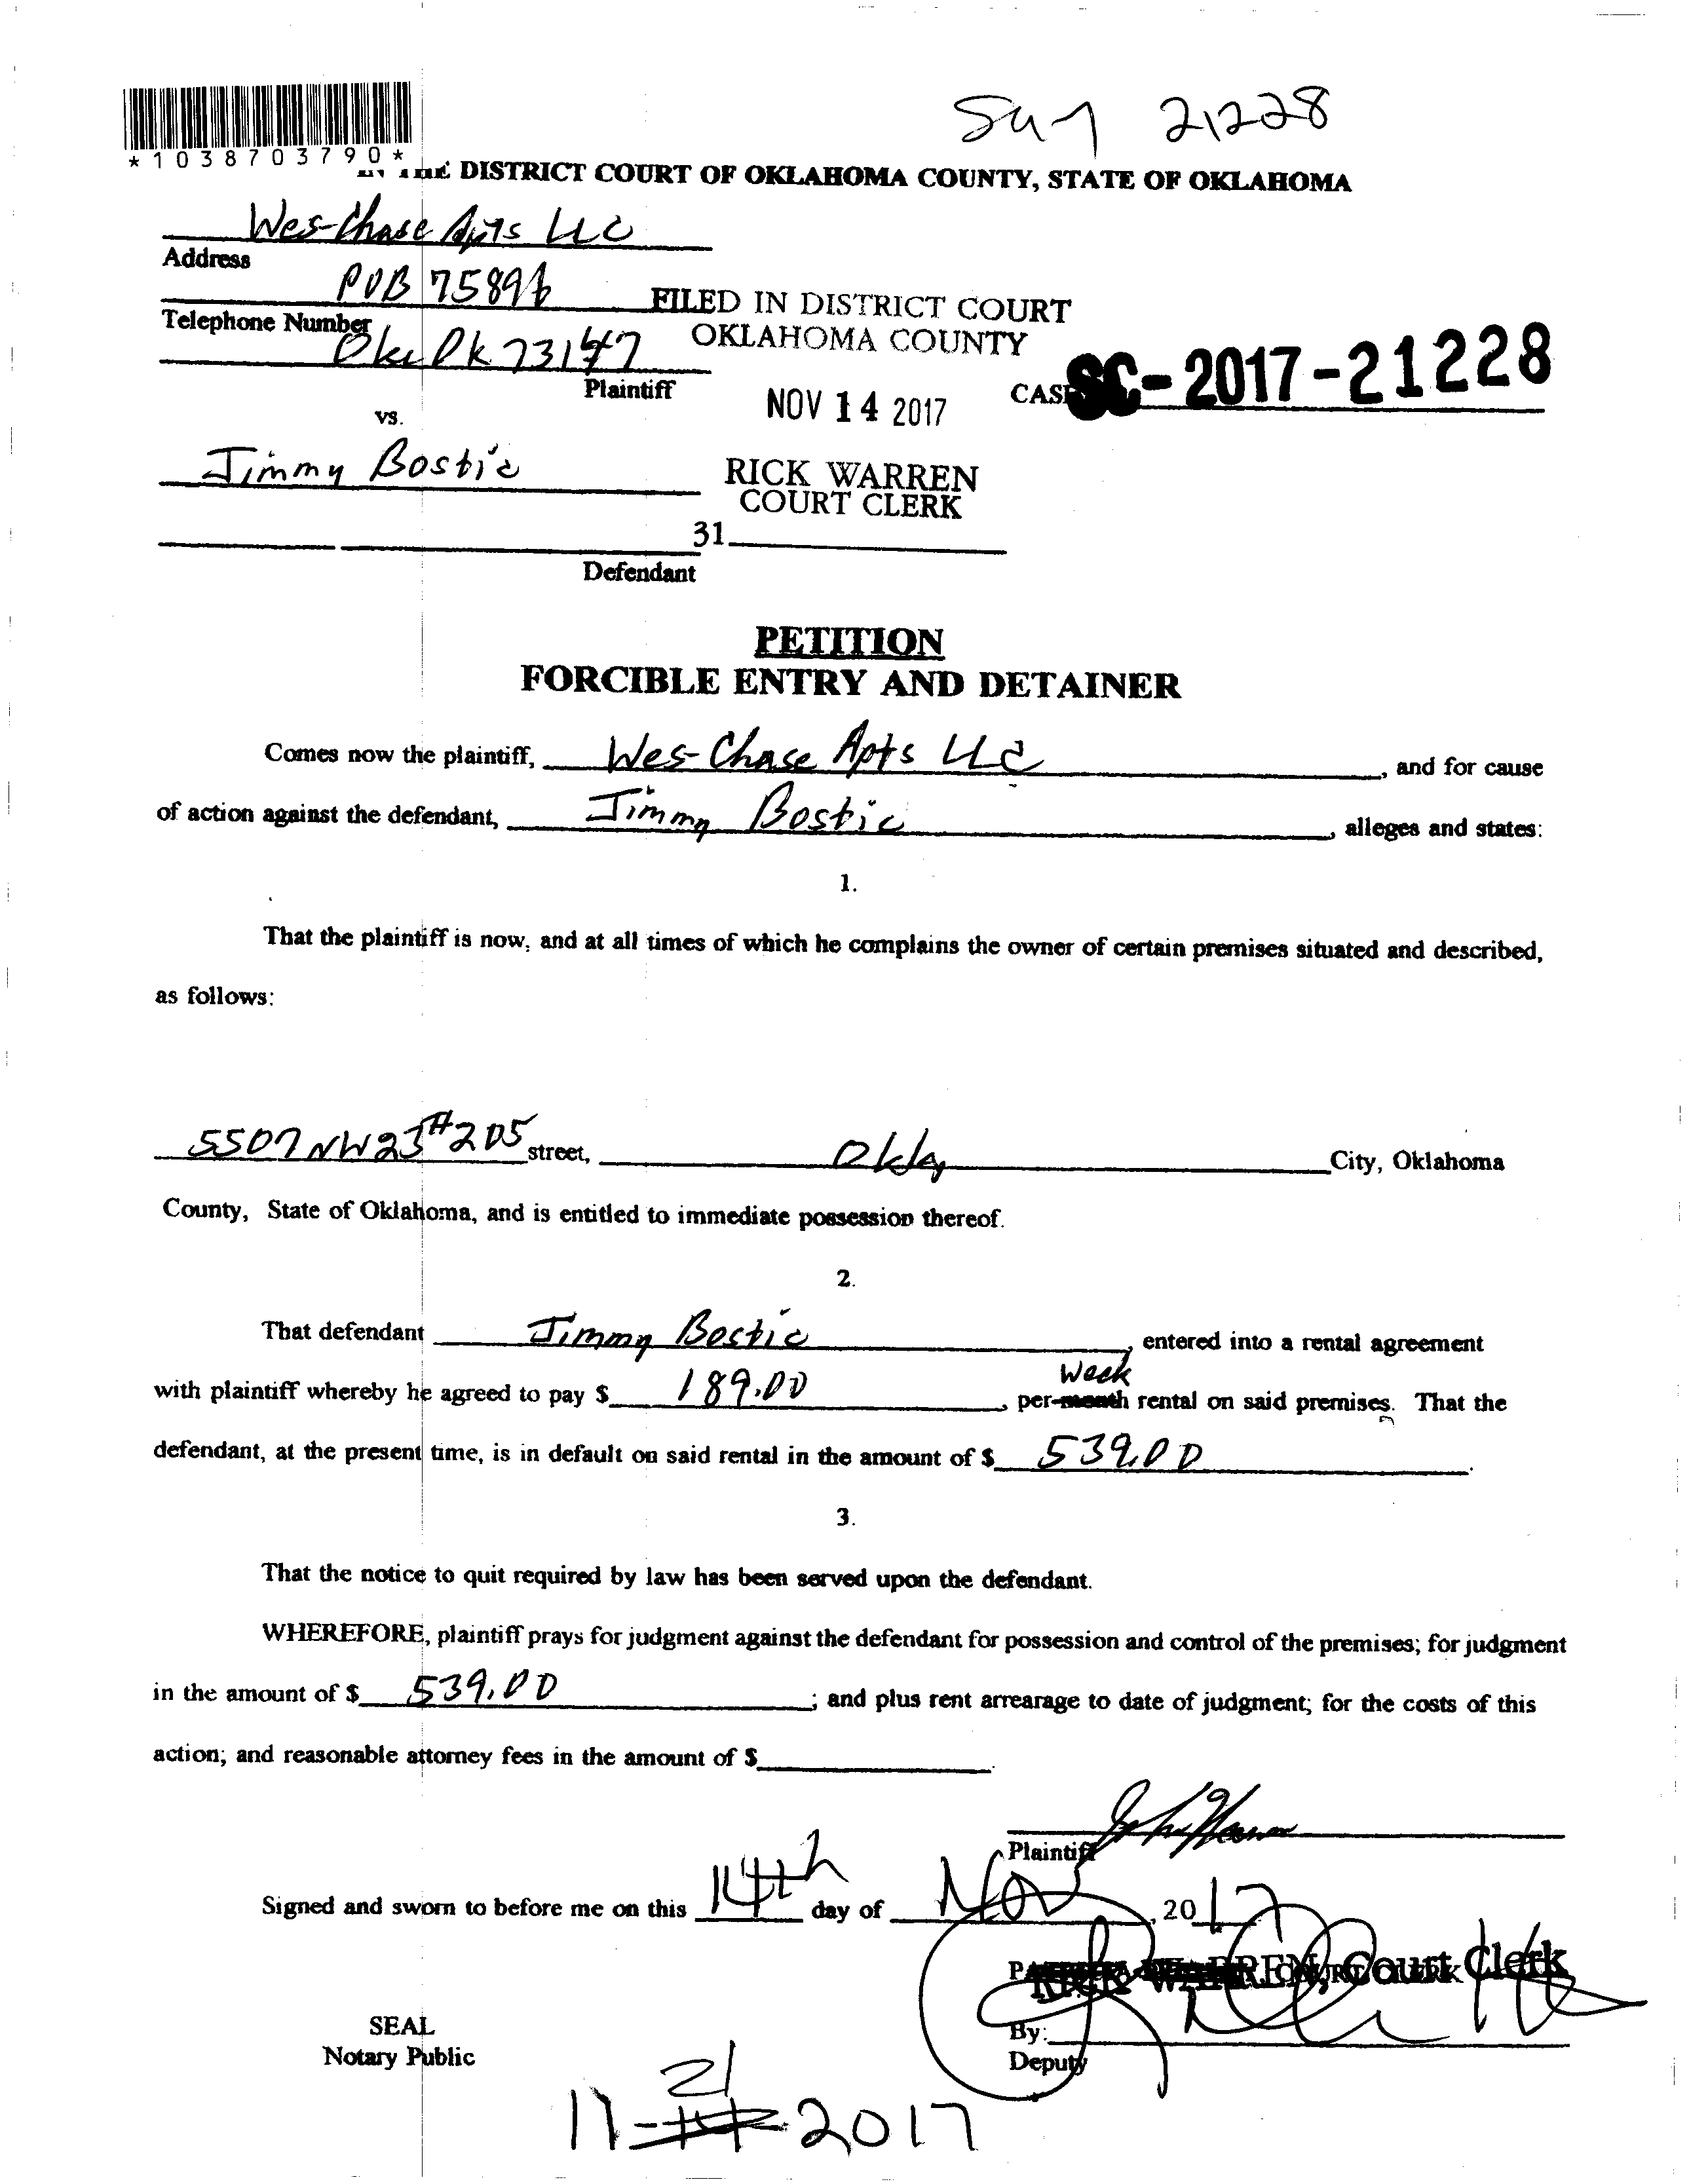 21228
*1038703790*
THE DISTRICT COURT OF OKLAHOMA COUNTY, STATE OF OKLAHOMA
Wes-Chase Apts LLC
Address
POB 75896
Telephone Number
Okc Ok 73147
Plaintiff
FILED IN DISTRICT COURT
OKLAHOMA COUNTY
NOV 14 2017
RICK WARREN
COURT CLERK
31
CASE SC-2017-21228
vs.
Jimmy Bostic
Defendant
PETITION
FORCIBLE ENTRY AND DETAINER
Comes now the plaintiff, Wes-Chase Apts LLC, and for cause
of action against the defendant, Jimmy Bostic, alleges and states:
1.
That the plaintiff is now, and at all times of which he complains the owner of certain premises situated and described,
as follows:
5507 NW 23 #205 street, Okla City, Oklahoma
County, State of Oklahoma, and is entitled to immediate possession thereof.
2.
That defendant Jimmy Bostic, entered into a rental agreement
with plaintiff whereby he agreed to pay $ 189.00, per-month Week rental on said premises. That the
defendant, at the present time, is in default on said rental in the amount of $ 539.00.
3.
That the notice to quit required by law has been served upon the defendant.
WHEREFORE, plaintiff prays for judgment against the defendant for possession and control of the premises; for judgment
in the amount of $ 539.00; and plus rent arrearage to date of judgment; for the costs of this
action; and reasonable attorney fees in the amount of $.
Plaintiff
Signed and sworn to before me on this 14th day of Nov, 2017
RICK WARREN, Court Clerk
SEAL
Notary Public
By:
Deputy
21
11-14-2017